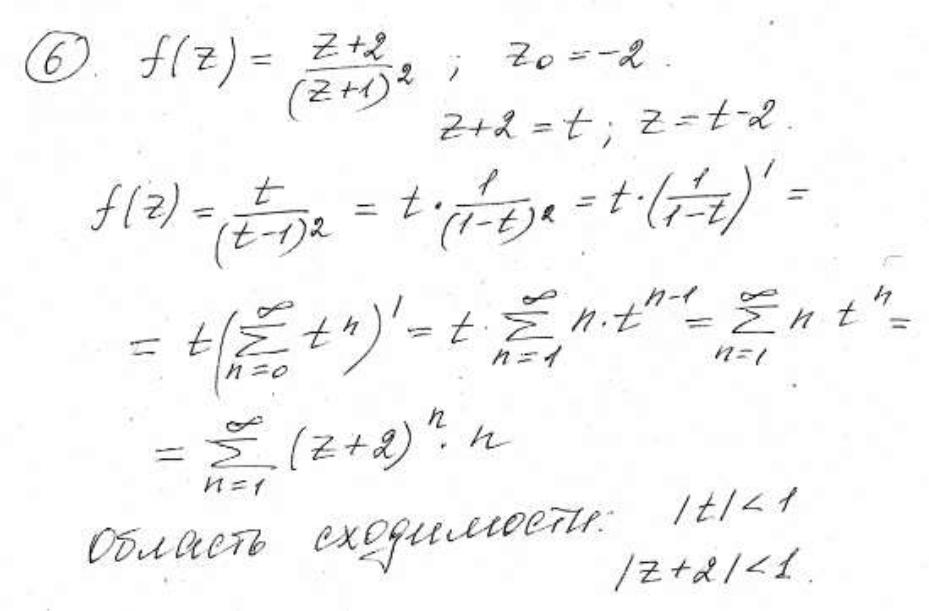 ⑥. f(z) = \frac{z+2}{(z+1)^2} ; z_0 = -2.
z+2 = t ; z = t-2.
f(z) = \frac{t}{(t-1)^2} = t \cdot \frac{1}{(1-t)^2} = t \cdot \left(\frac{1}{1-t}\right)' =
= t \left(\sum_{n=0}^{\infty} t^n\right)' = t \cdot \sum_{n=1}^{\infty} n \cdot t^{n-1} = \sum_{n=1}^{\infty} n \cdot t^n =
= \sum_{n=1}^{\infty} (z+2)^n \cdot n
Область сходимости: |t| < 1
|z+2| < 1.